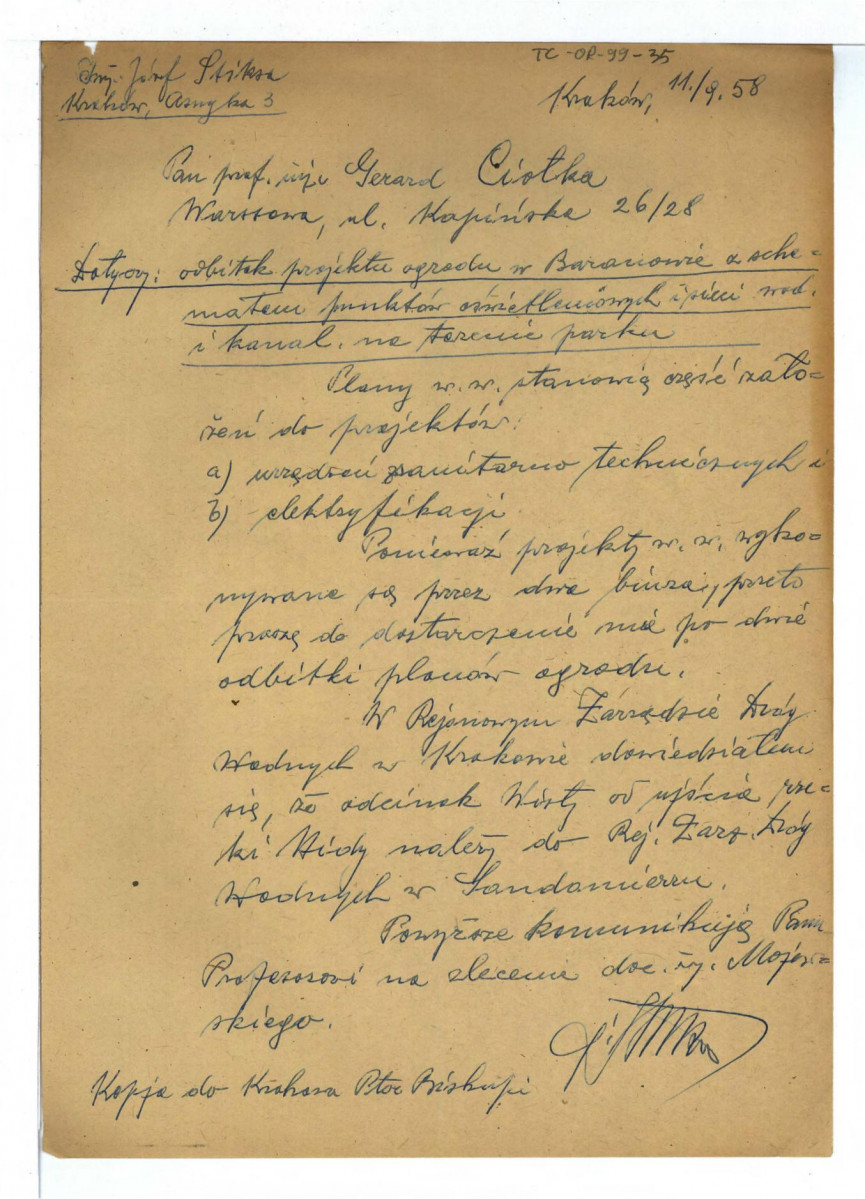 TC-OP-99-35
Inż. Józef Stiksa
Kraków, Asnyka 3
Kraków, 11./9. 58
Pan prof. inż. Gerard Ciołka
Warszawa, ul. Kapińska 26/28
Dotyczy: odbitek projektu ogrodu w Baranowie z sche=
matem punktów oświetleniowych i sieci wod.
i kanal. na terenie parku
Plany w.w. stanowią część zało=
żeń do projektów:
a) urządzeń sanitarno technicznych i
b) elektryfikacji
Ponieważ projekty w.w. wyko=
nywane są przez dwa biura, przeto
proszę do dostarczenie mie po dwie
odbitki planów ogrodu.
W Rejonowym Zarządzie Dróg
Wodnych w Krakowie dowiedziałem
się, że odcinek Wisły od ujścia rze=
ki Nidy należy do Rej. Zarz. Dróg
Wodnych w Sandomierzu.
Powyższe komunikuję Panu
Profesorowi na zlecenie doc. inż. Majew=
skiego.
Kopja do Plac